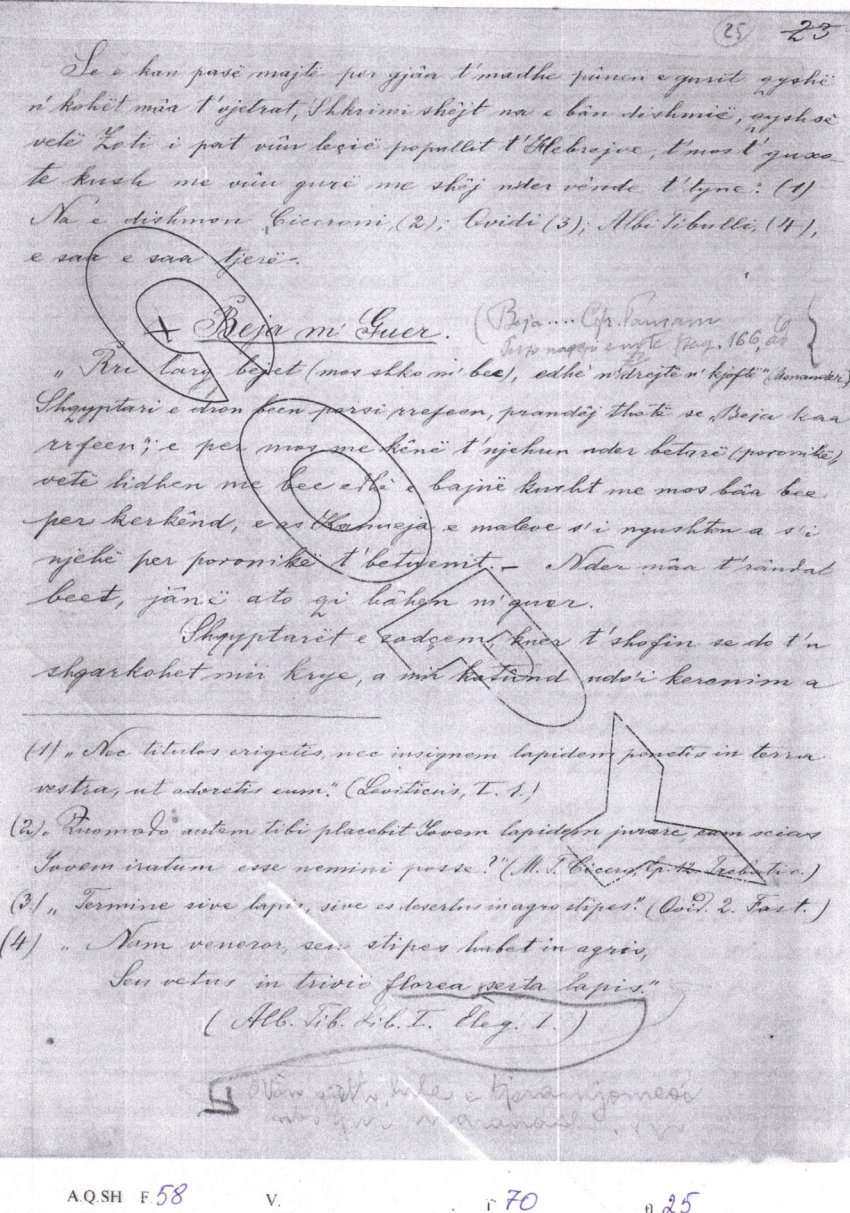 25 23
Se e kan pasë majtë per gjâa t'madhe pûnen e gurit qyshë
n' kohët mâa t'vjetrat, Shkrimi shêjt na e bân dishmië, qyshsë
vetë Zoti i pat vûu legië popullit t'Hebrejve, t'mos t'guxo-
te kush me vûu gurë me shêj nder vênde t'tyne: (1)
Na e dishmon Ciceroni, (2); Ovidi (3); Albi Tibulli, (4),
e saa e saa tjerë.
+ Beja m' Guer.
(Beja.... Cfr.
pag. 166,
„Rri larg bejet (mos shko m' bee), edhè n'drejte n' kjoftë" (Menander)
Shqyptari e dron been porsi rrefeen, prandêj thotë se „Beja kaa
rrfeen"; e per mos me kênë t'njehun nder betarë (poronikë),
vetë lidhen me bee edhè e bajnë kusht me mos bâa bee
per kerkênd, e as Kanueja e maleve s'i ngushton a s'i
njehë per poronikë t'betuemit. – Nder mâa t'rândat
beet, jânë ato qi bâhen m'guer.
Shqyptarët e sodçem, kuer t'shofin se do t'u
shqarkohet mii krye, a mii katûnd ndo'i kercnim a
(1) „Nec titulos erigetis, nec insignem lapidem ponetis in terra
vestra, ut adoretis eum." (Leviticus, I. 1.)
(2) „Quomodo autem tibi placebit Jovem lapidem jurare, cum scias
Jovem iratum esse nemini posse?" (M. T. Cicero, Ep. 12 Trebatio.)
(3) „Termine sive lapis, sive es desertus in agro stipes". (Ovid. 2. Fast.)
(4) „Nam veneror, seu stipes habet in agris,
Seu vetus in trivio florea serta lapis."
(Alb. Tib. Lib. I. Eleg. 1.)
COPY
A.Q.SH F. 58 V. 70 fl 25